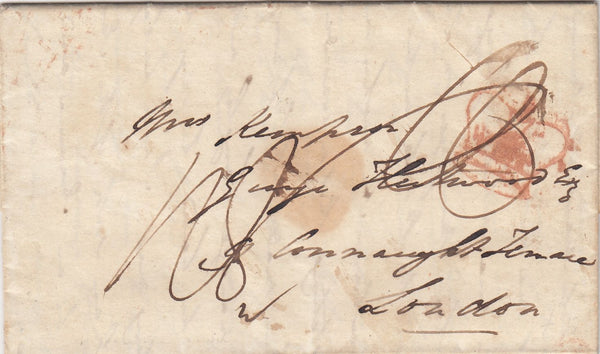 Mrs Kempson
George Fleetwood Esq
Connaught Terrace
London